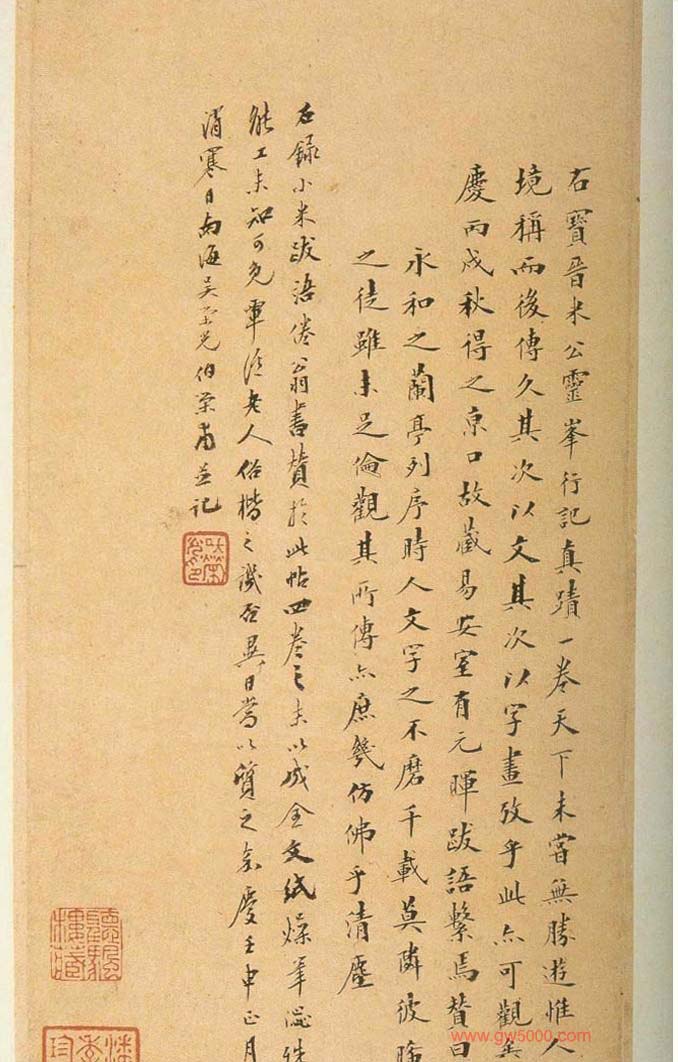 右寶晉米公靈峯行記真蹟一卷天下未嘗無勝遊惟人
境稱而後傳久其次以文其次以字畫攷乎此亦可觀
慶丙戌秋得之京口故藏易安室有元暉跋語繫焉贊曰
永和之蘭亭列序時人文字之不磨千載莫隣彼
之徒雖未足倫觀其所傳亦庶幾仿佛乎清塵
右錄小米跋語倦翁書贊於此帖四卷之末以成全文紙燥筆澀
能工未知可免覃溪老人俗楷之譏否異日當以質之嘉慶壬申正月
消寒日南海吳榮光伯榮甫並記
www.gw5000.com